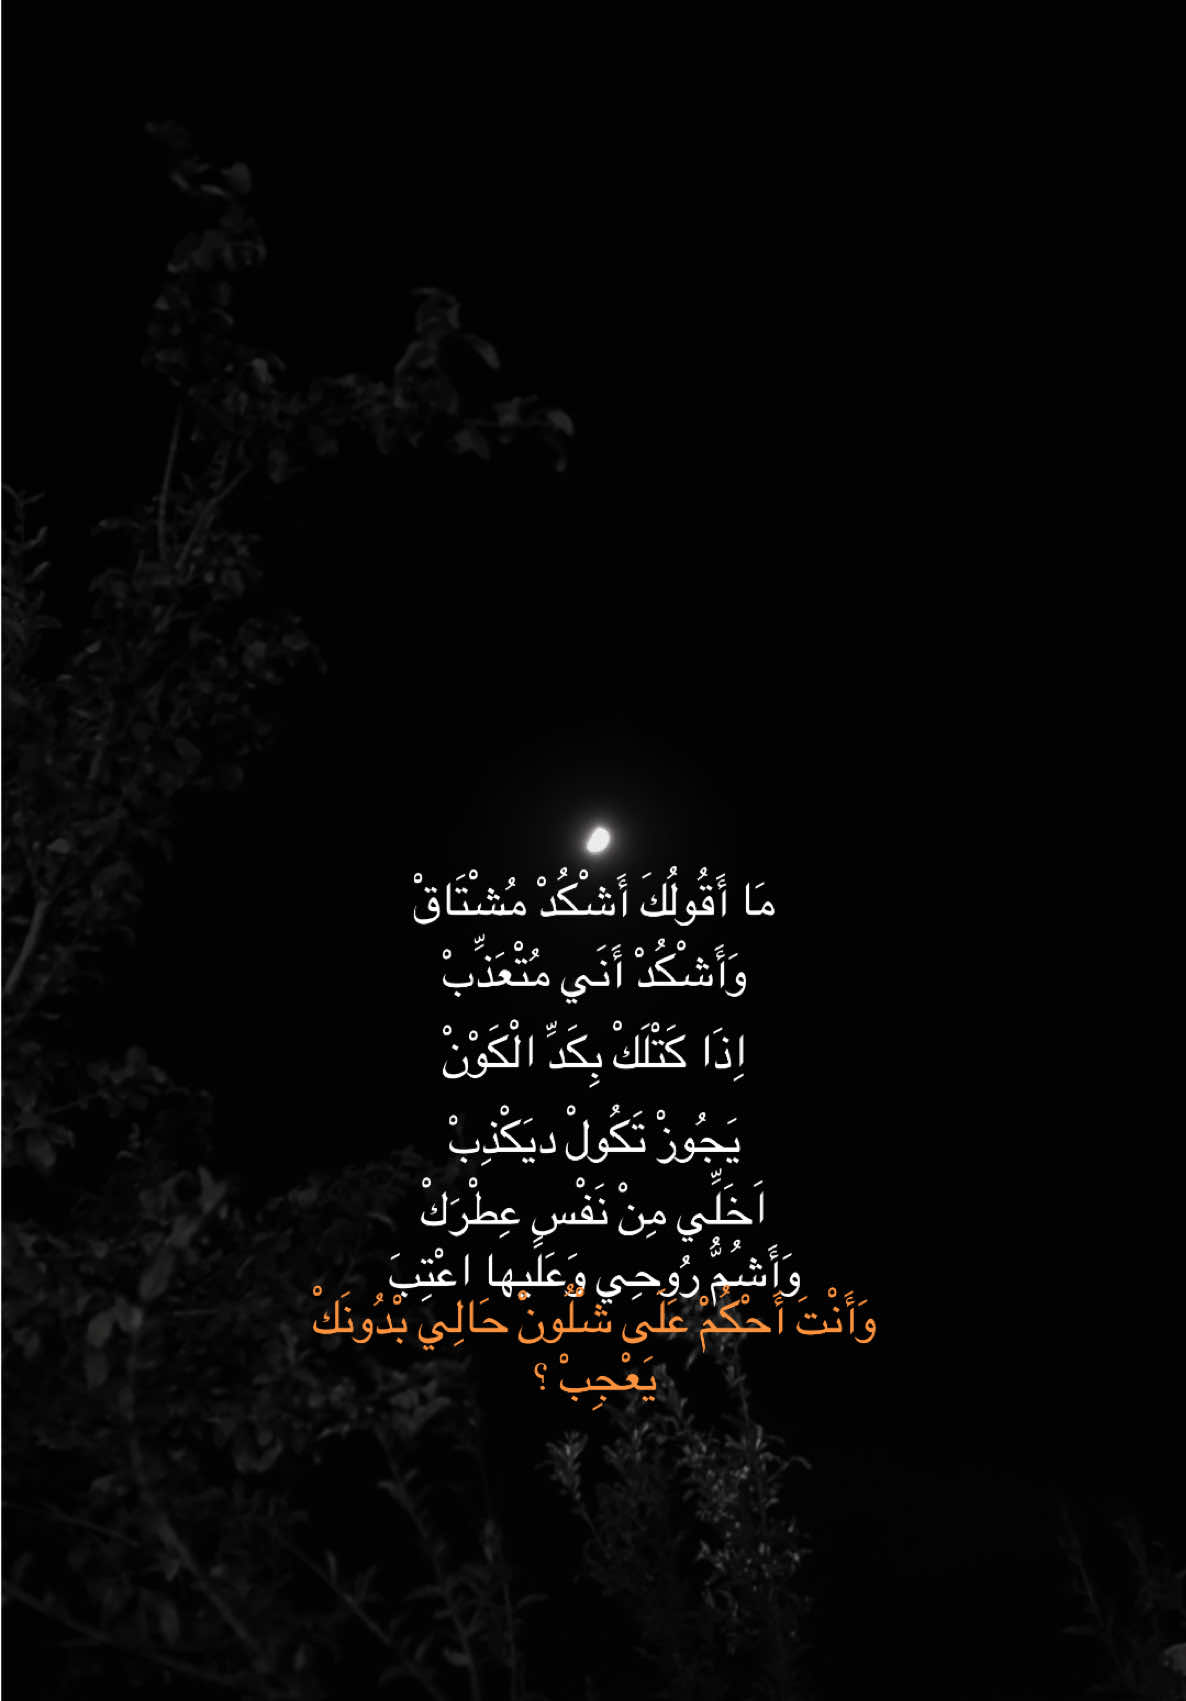 مَا أَقُولُكَ أَشْكُدْ مُشْتَاقْ
وَأَشْكُدْ أَنَي مُتْعَذِّبْ
اِذَا كَتْلَكْ بِكَدِّ الْكَوْنْ
يَجُوزْ تَكُولْ ديَكْذِبْ
اَخَلِّي مِنْ نَفْسِ عِطْرَكْ
وَأَشُمُّ رُوحِي وَعَلَيها اعْتِبَ
وَأَنْتَ أَحْكُمْ عَلَى شْلُونْ حَالِي بْدُونَكْ
يَعْجِبْ ؟